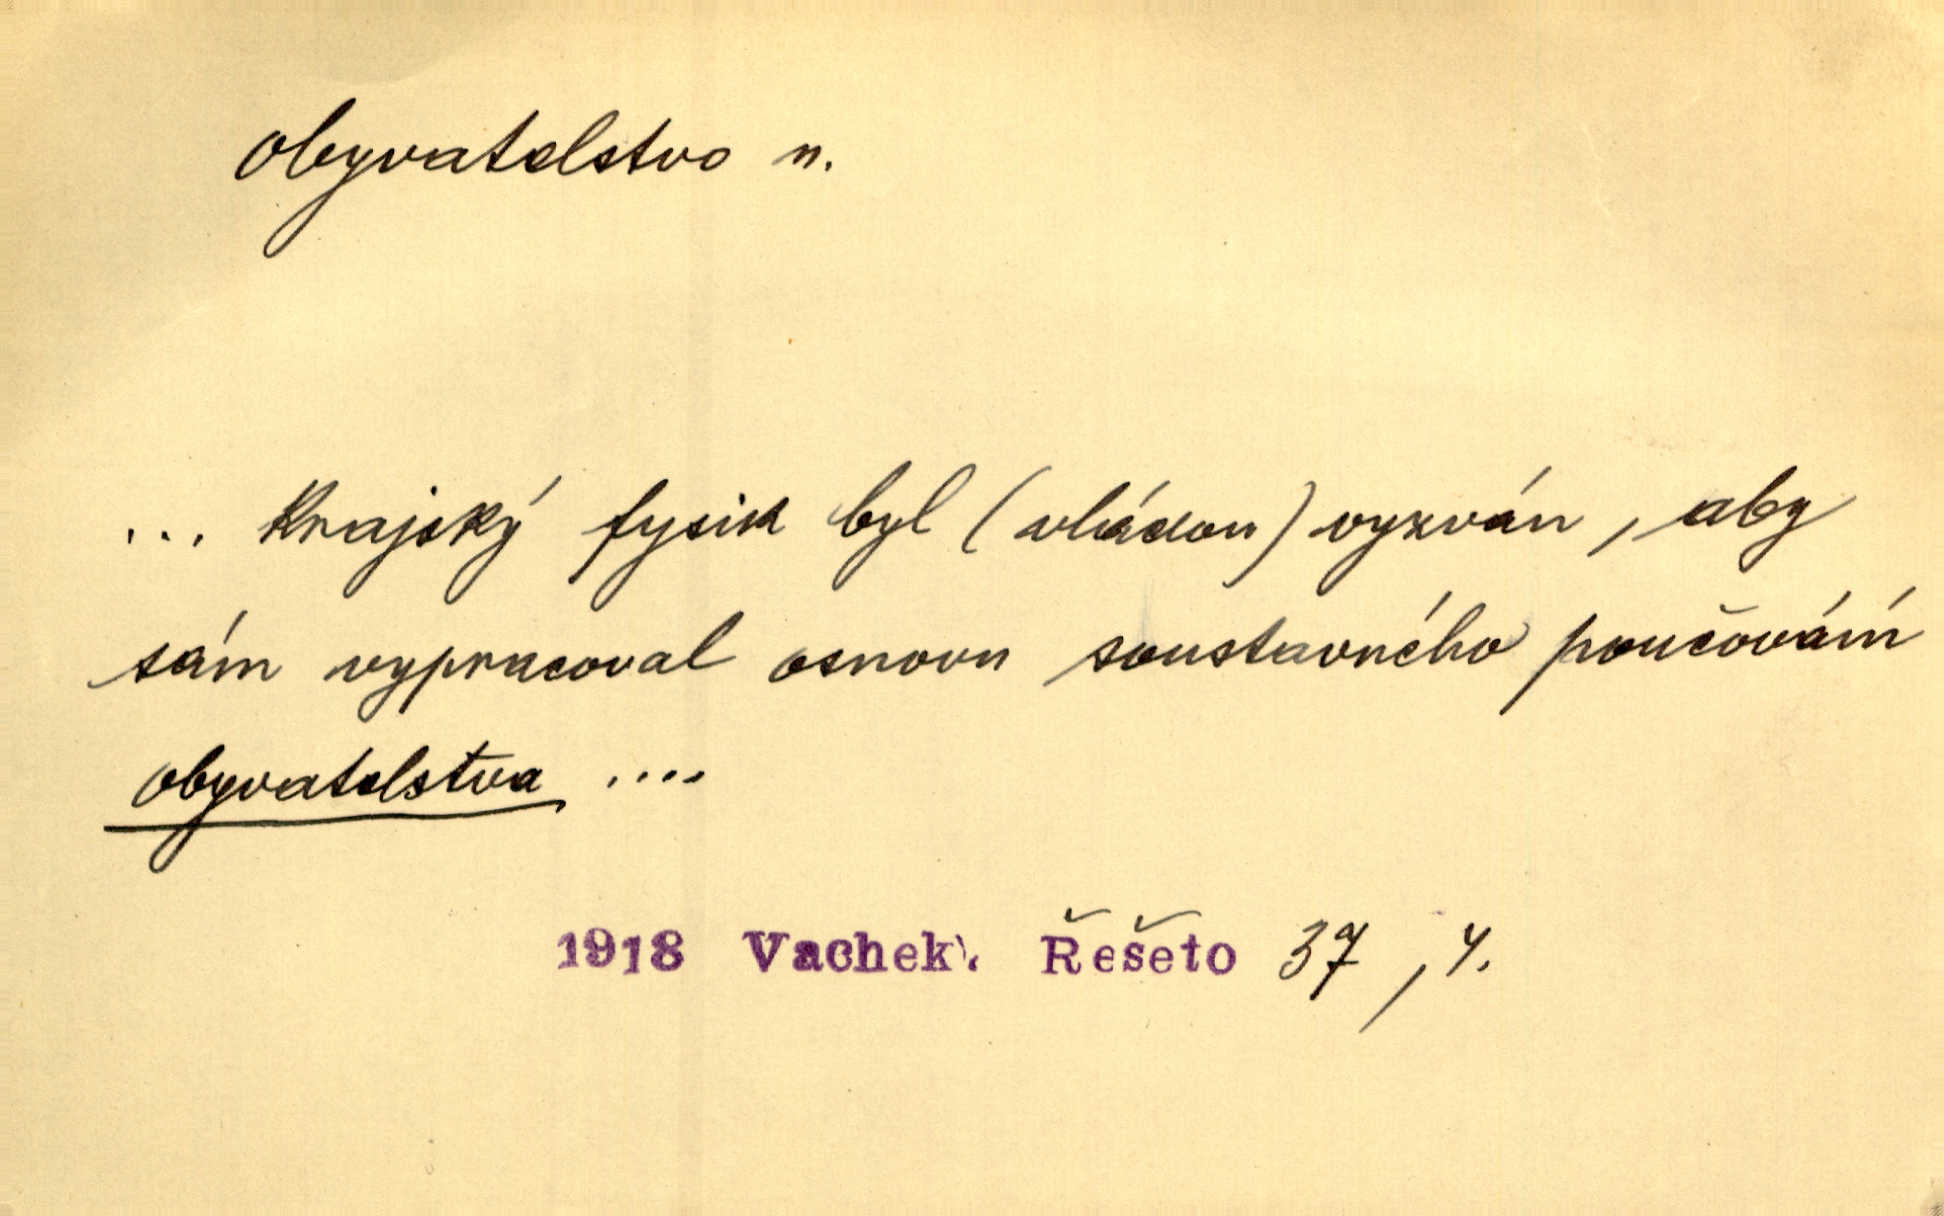 obyvatelstvo n.
... Krajský fysik byl (vládou) vyzván, aby
sám vypracoval osnovu soustavného poučování
obyvatelstva ....
1918 Vachek. Řešeto 37, 4.